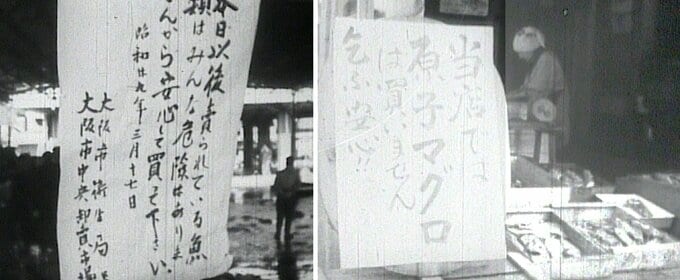 本日以後賣られている魚
類はみんな危険はありま
せんから安心して買って下さい.
昭和廿九年三月十七日
大阪市衛生局
大阪市中央卸賣市場
当店では
原子マグロ
は買いません
乞ふ安心!!